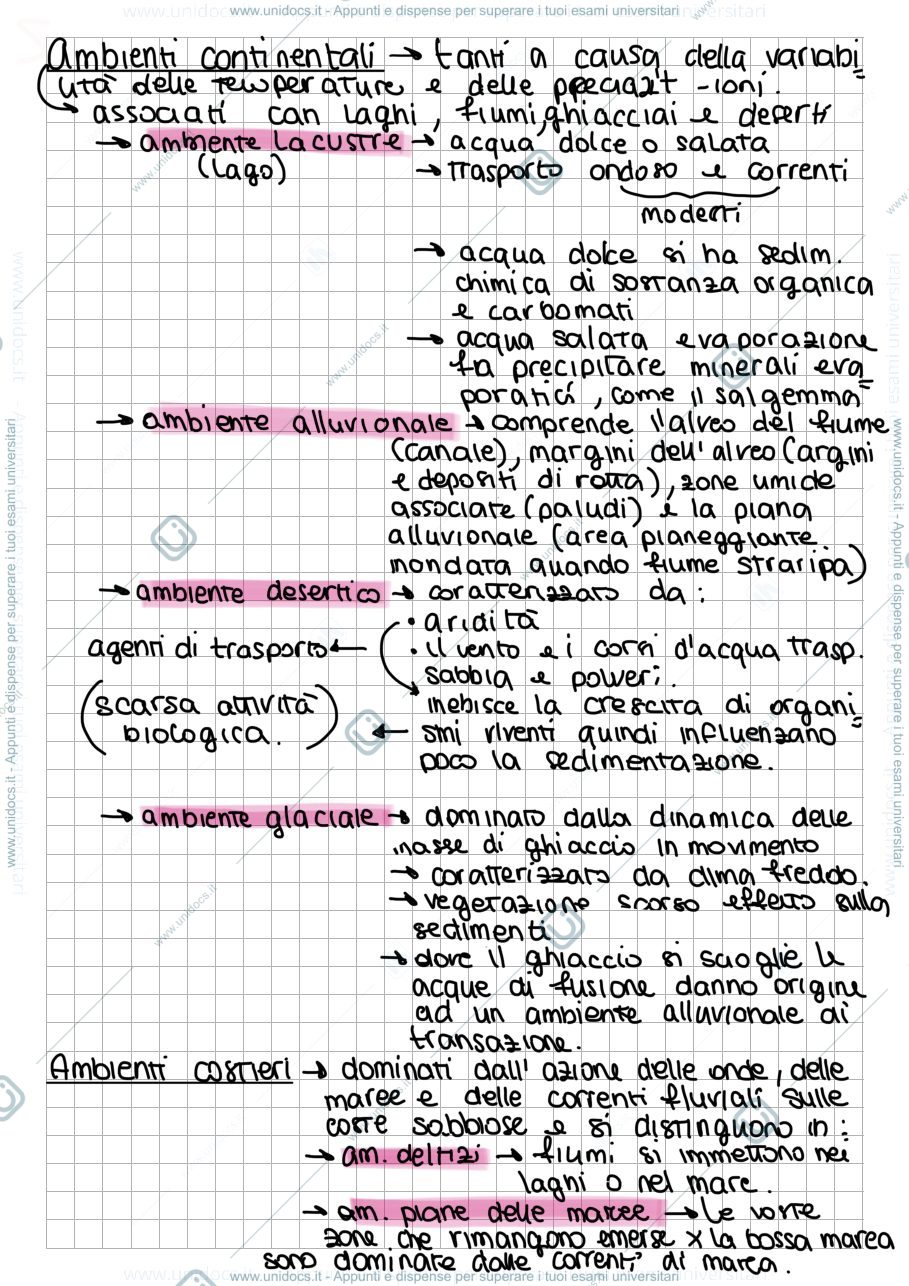 www.unidocs.it - Appunti e dispense per superare i tuoi esami universitari
Ambienti continentali → tanti a causa della variabi=
lità delle temperature e delle precipit -ioni.
→ associati con laghi, fiumi, ghiacciai e deserti
→ ambiente lacustre → acqua dolce o salata
(lago) → trasporto ondoso e correnti
modesti
→ acqua dolce si ha sedim.
chimica di sostanza organica
e carbonati
→ acqua salata evaporazione
fa precipitare minerali eva=
poratici, come il salgemma
→ ambiente alluvionale → comprende l'alveo del fiume
(canale), margini dell'alveo (argini
e depositi di rotta), zone umide
associate (paludi) e la piana
alluvionale (area pianeggiante
inondata quando fiume straripa)
→ ambiente desertico → caratterizzato da:
• aridità
agenti di trasporto ← • il vento e i corsi d'acqua trasp.
sabbia e polveri.
(scarsa attività inebisce la crescita di organi=
biologica.) ← smi viventi quindi influenzano
poco la sedimentazione.
→ ambiente glaciale → dominato dalla dinamica delle
masse di ghiaccio in movimento
→ caratterizzato da clima freddo.
→ vegetazione scarso effetto sulla
sedimenti
→ dove il ghiaccio si scioglie le
acque di fusione danno origine
ad un ambiente alluvionale di
transazione.
Ambienti costieri → dominati dall'azione delle onde, delle
maree e delle correnti fluviali sulle
coste sabbiose e si distinguono in:
→ am. deltizi → fiumi si immettono nei
laghi o nel mare.
→ am. piane delle maree → Le vaste
zone che rimangono emerse x la bassa marea
sono dominate dalle correnti di marea.
www.unidocs.it - Appunti e dispense per superare i tuoi esami universitari